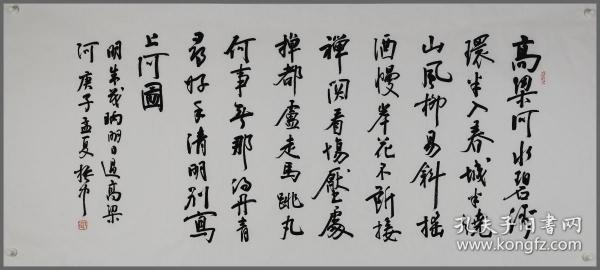 高梁河水碧湾
環半入春城半繞
山風柳易斜摇
酒幔岸花不斷接
禅関看場壓處
掉都盧走馬跳丸
何事無那得丹青
尋好手清明别寫
上河圖
明朱茂昞明日過高梁
河庚子孟夏
孔夫子旧书网
www.kongfz.com